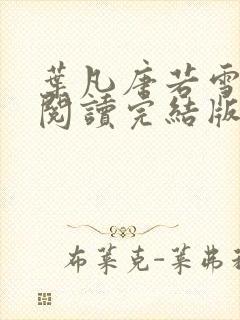 葉凡唐若雪
閱讀完結版
布萊克-萊弗利